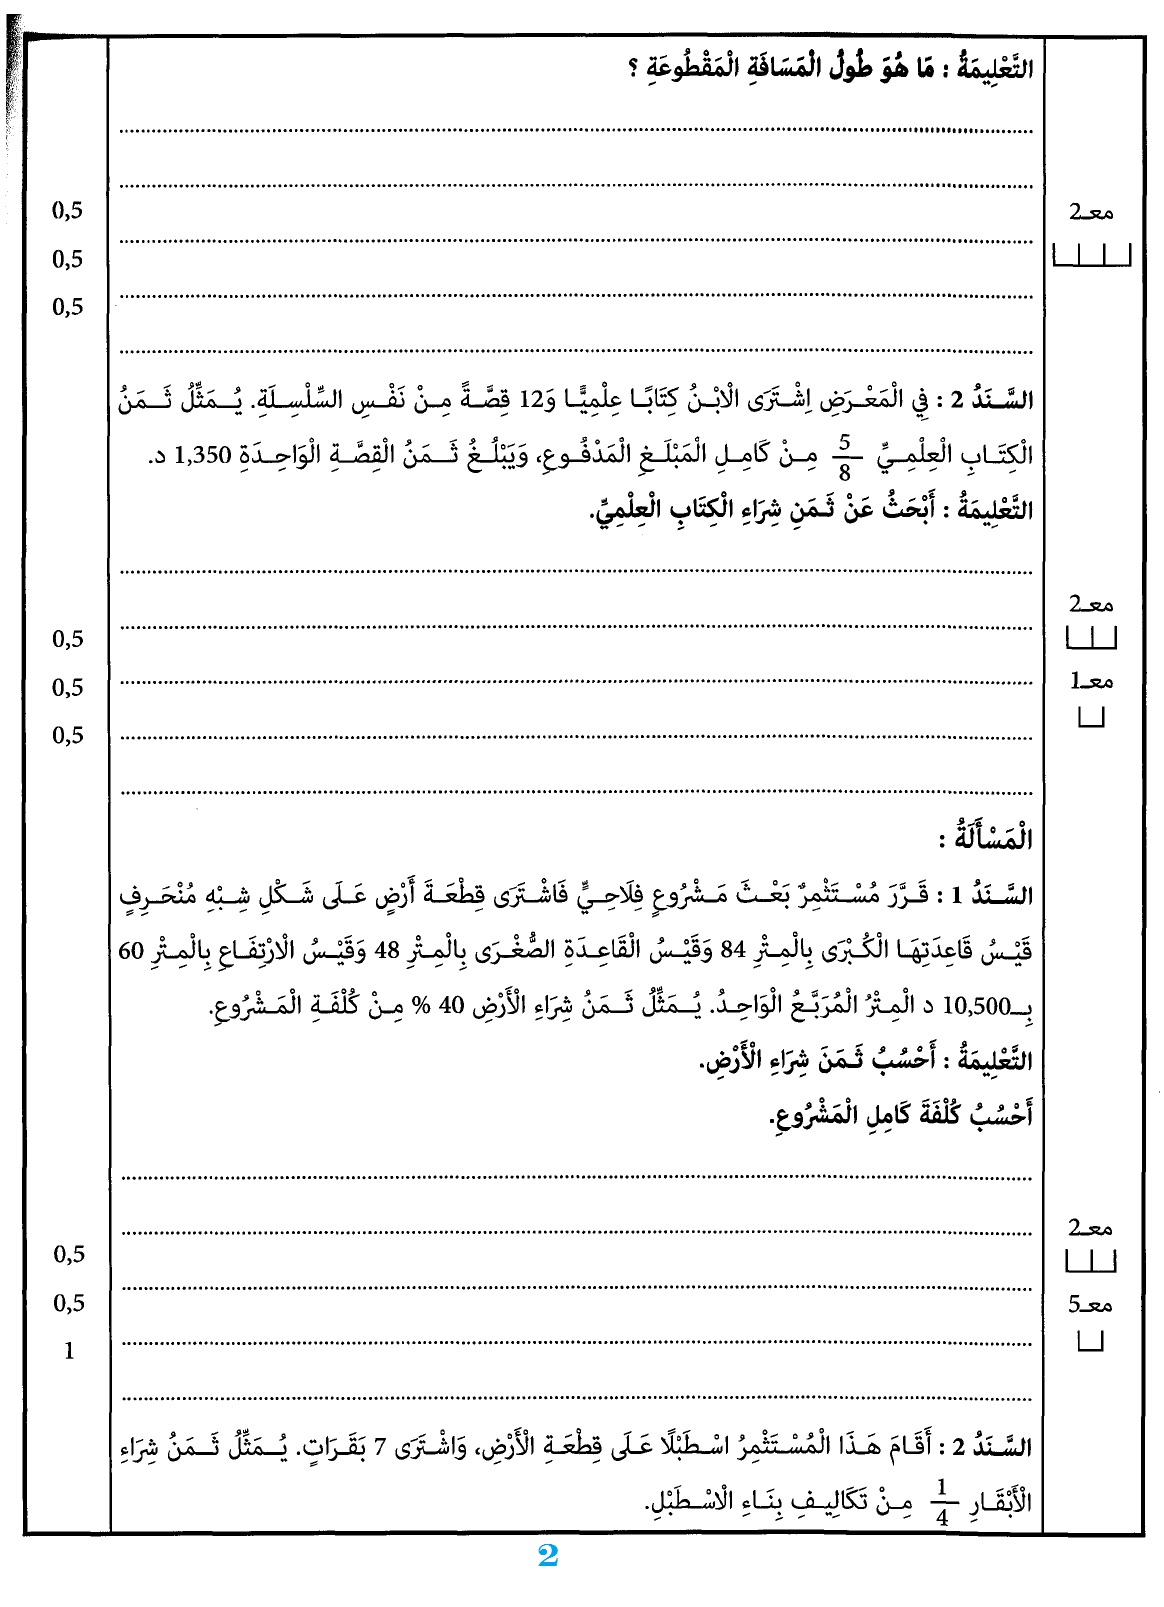 التَّعْلِيمَةُ : مَا هُوَ طُولُ الْمَسَافَةِ الْمَقْطُوعَةِ ؟
معـ2
0,5
0,5
0,5
السَّنَدُ 2 : فِي الْمَعْرَضِ اِشْتَرَى الْابْنُ كِتَابًا عِلْمِيًّا وَ12 قِصَّةً مِنْ نَفْسِ السِّلْسِلَةِ. يُمَثِّلُ ثَمَنُ
الْكِتَابِ الْعِلْمِيِّ 5/8 مِنْ كَامِلِ الْمَبْلَغِ الْمَدْفُوعِ، وَيَبْلُغُ ثَمَنُ الْقِصَّةِ الْوَاحِدَةِ 1,350 د.
التَّعْلِيمَةُ : أَبْحَثُ عَنْ ثَمَنِ شِرَاءِ الْكِتَابِ الْعِلْمِيِّ.
معـ2
0,5
معـ1
0,5
0,5
الْمَسْأَلَةُ :
السَّنَدُ 1 : قَرَّرَ مُسْتَثْمِرٌ بَعْثَ مَشْرُوعٍ فِلَاحِيٍّ فَاشْتَرَى قِطْعَةَ أَرْضٍ عَلَى شَكْلِ شِبْهِ مُنْحَرِفٍ
قَيْسُ قَاعِدَتِهَا الْكُبْرَى بِالْمِتْرِ 84 وَقَيْسُ الْقَاعِدَةِ الصُّغْرَى بِالْمِتْرِ 48 وَقَيْسُ الْارْتِفَاعِ بِالْمِتْرِ 60
بِـ10,500 د الْمِتْرُ الْمُرَبَّعُ الْوَاحِدُ. يُمَثِّلُ ثَمَنُ شِرَاءِ الْأَرْضِ 40 % مِنْ كُلْفَةِ الْمَشْرُوعِ.
التَّعْلِيمَةُ : أَحْسُبُ ثَمَنَ شِرَاءِ الْأَرْضِ.
أَحْسُبُ كُلْفَةَ كَامِلِ الْمَشْرُوعِ.
معـ2
0,5
معـ5
0,5
1
السَّنَدُ 2 : أَقَامَ هَذَا الْمُسْتَثْمِرُ اسْطَبْلًا عَلَى قِطْعَةِ الْأَرْضِ، وَاشْتَرَى 7 بَقَرَاتٍ. يُمَثِّلُ ثَمَنُ شِرَاءِ
الْأَبْقَارِ 1/4 مِنْ تَكَالِيفِ بِنَاءِ الْاسْطَبْلِ.
2